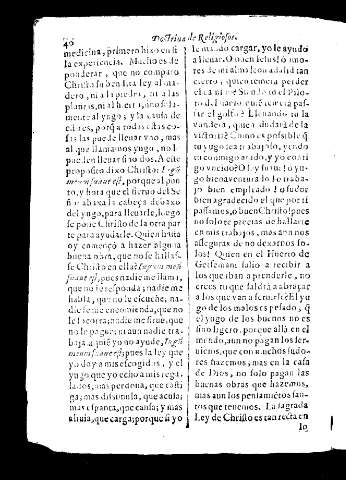 46
Doctrina de Religiosos.
medicina, primero hizo en si
la experiencia. Mucho es de
ponderar, que no comparo
Christo su bendita ley al ma-
dero, ni a la piedra, ni a las
al yugo; y la causa de
todas estas co-
sas las puede llevar uno, mas
al que llamamos yugo, no l
pueden llevar sino dos. A este
proposito dixo Christo: Iugũ
meum suaue est, porque al pon-
to, y hora que el siervo del Se
ñor abaxa la cabeça debaxo
del yugo, para llevarle, luego
se pone Christo de la otra par
te para ayudarle. Quien hasta
oy començò a hazer alguna
buena obra, que no se hallas-
se Christo en ella? Iugum meũ
suaue est, pues nadie me llama,
que no le responda; nadie me
habla, que no le escuche, na-
die se me encomienda, que no
le socorra; nadie me sirue, que
no le pague; ni aun nadie tra-
baja a quiẽ yo no ayude. Iugũ
meum suaue est; pues la ley que
yo doy a mis escogidos, y el
yugo que yo echo a mis rega-
lados, mas perdona, que casti
ga; mas disimula, que acusa;
mas espanta, que cansa; y mas
aliuia, que carga; porque si yo
le mando cargar, yo le ayudo
a lleuar. O buen Iesus! ò amo-
res de mi alma! con adalid tan
cierto, quien temerà perder
el camino? Siendo tu el Pilo-
to del barco, quẽ temerà pas-
sar el golfo? Lleuando tu la
vandera, quien dudarà de la
victoria? Como es possible q̃
tu yugo sea trabajoso, yendo
tu conmigo atado, y yo conti
go vncido? O ley justa! ò yu-
go bienaventurado! ò traba-
jo bien empleado! ò sudor
bien agradecido el que por ti
passamos, o buen Christo! pues
no solo te precias de hallarte
en mis trabajos, mas aun nos
asseguras de no dexarnos so-
los! Quien en el Huerto de
Getsemani salio a recibir a
los que iban a prenderle, no
crees tu que saldrà a abraçar
a los que van a seruirle? El yu
go de los malos es pesado, q̃
el yugo de los buenos no es
sino ligero, porque allà en el
mũdo, aun no pagan los ser-
uicios, que con muchos sudo-
res hazemos, mas en la casa
de Dios, no solo pagan las
buenas obras que hazemos,
mas aun los pensamiẽtos san-
tos que tenemos. La sagrada
Ley de Christo es tan recta en
lo